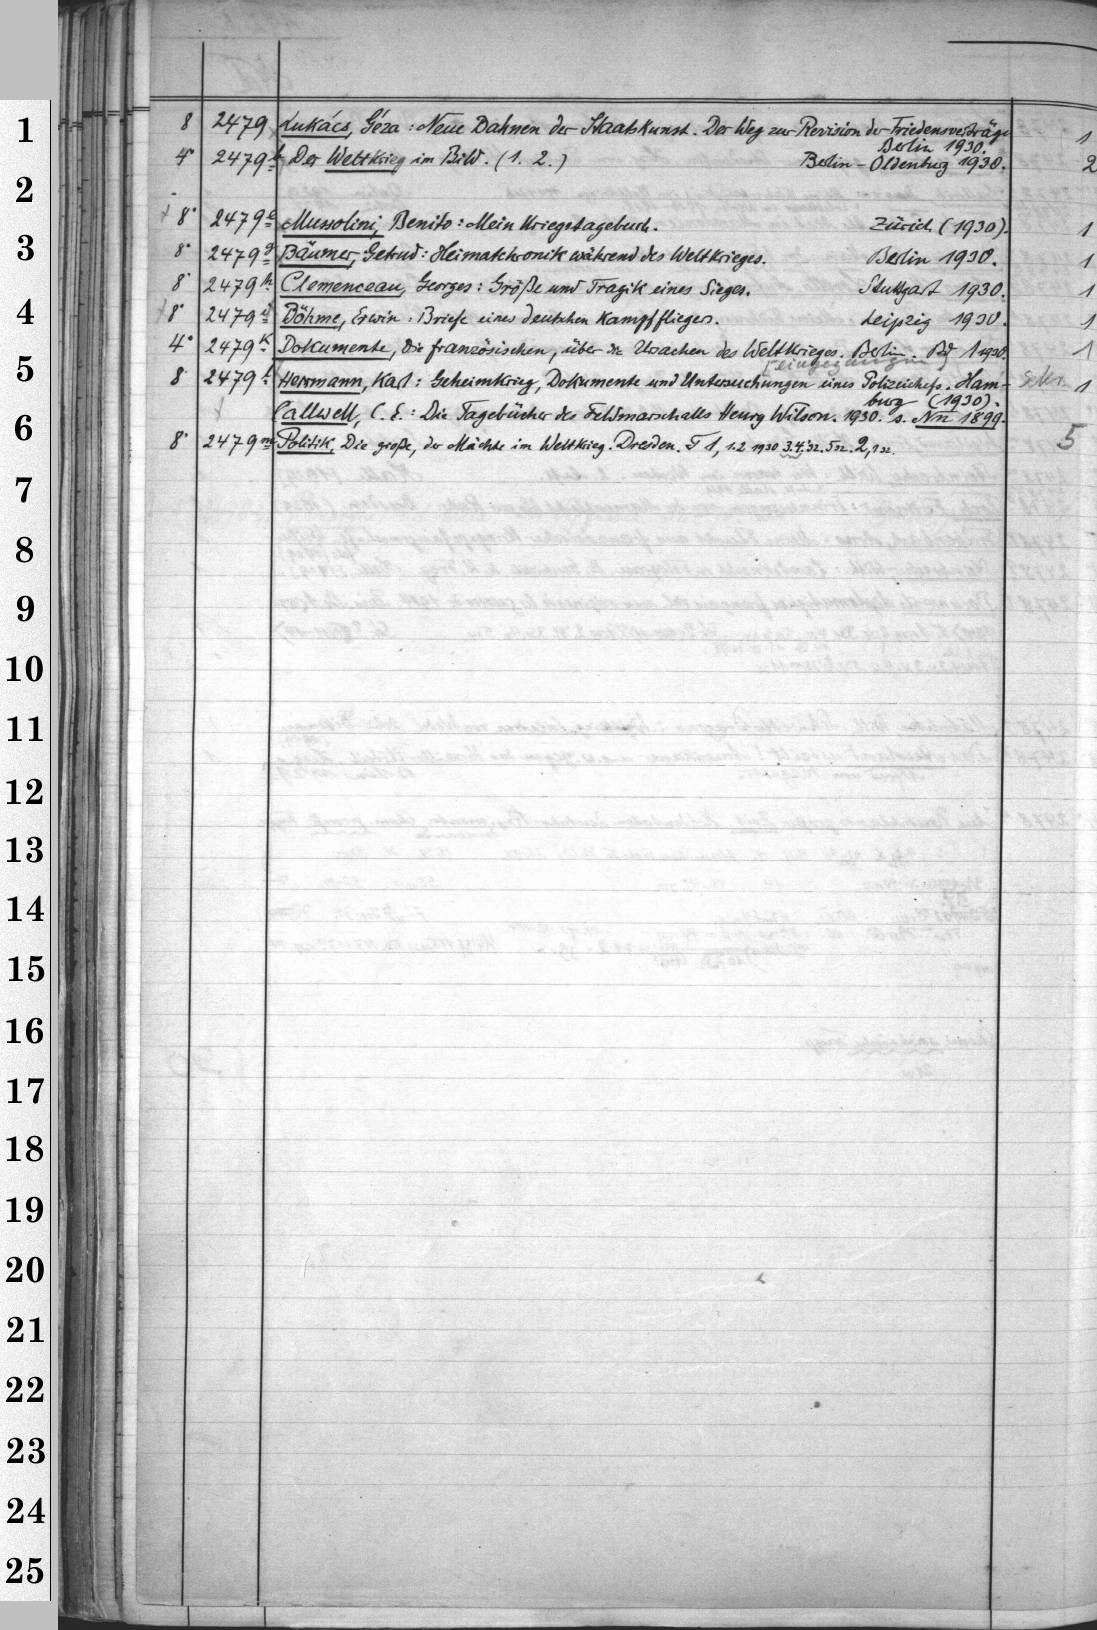 1
8 2479 Lukács, Géza: Neue Bahnen der Staatskunst. Der Weg zur Revision der Friedensverträge 1
Berlin 1930.
4° 2479b Der Weltkrieg im Bild. (1. 2.) Berlin-Oldenburg 1930. 2
2
8° 2479e Mussolini, Benito: Mein Kriegstagebuch. Zürich (1930). 1
3
8° 2479g Bäumer, Getrud: Heimatchronik während des Weltkrieges. Berlin 1930. 1
8° 2479h Clemenceau, Georges: Größe und Tragik eines Sieges. Stuttgart 1930. 1
4
8° 2479i Böhme, Erwin: Briefe eines deutschen Kampffliegers. Leipzig 1930. 1
4° 2479k Dokumente, die französischen, über die Ursachen des Weltkrieges. Berlin. Bd 1 1930. 1
[eingegangen]
5
8° 2479l Herrmann, Karl: Geheimkrieg, Dokumente und Untersuchungen eines Polizeichefs. Ham- 1
burg (1930).
Callwell, C. E.: Die Tagebücher des Feldmarschalls Henry Wilson. 1930. s. Nn 1899.
6
8° 2479m Politik, Die große, der Mächte im Weltkrieg. Dresden. T 1, 1.2 1930 3.4.'32. 5 32. 2,1 32. 5
7
8
9
10
11
12
13
14
15
16
17
18
19
20
21
22
23
24
25